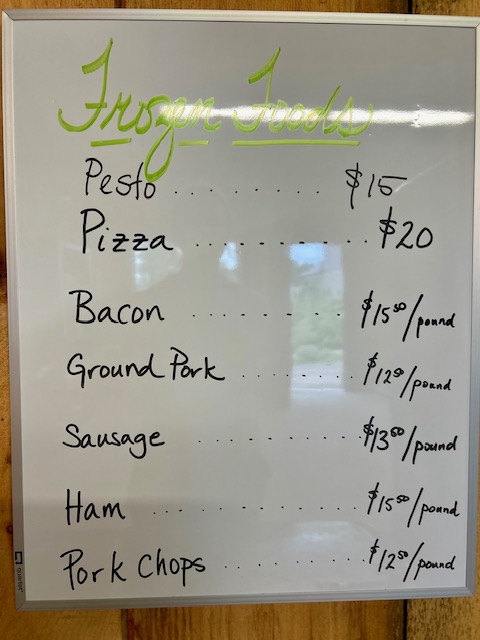 Frozen Foods
Pesto ........ $15
Pizza ......... $20
Bacon .......... $15⁵⁰/pound
Ground Pork ........ $12⁵⁰/pound
Sausage .......... $13⁵⁰/pound
Ham ............. $15⁵⁰/pound
Pork Chops .......... $12⁵⁰/pound
quartet